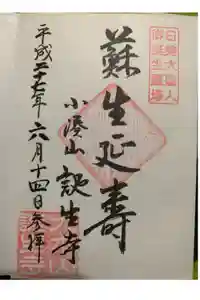 日蓮大聖人
御誕生霊場
蘇生延壽
小湊山 誕生寺
平成二十七年六月十四日参拝